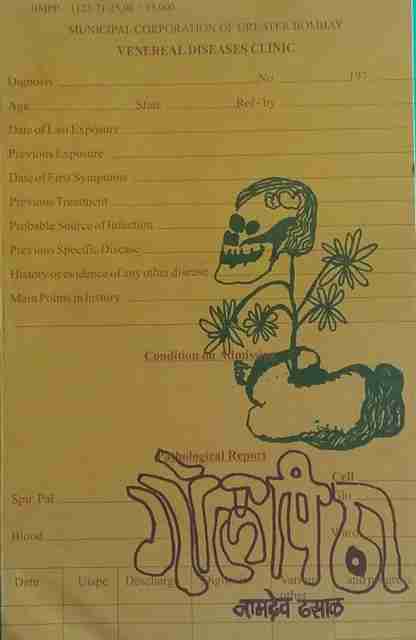 MUNICIPAL CORPORATION OF GREATER BOMBAY
VENEREAL DISEASES CLINIC
Diagnosis No 197
Age State Ref - by
Date of Last Exposure
Previous Exposure
Date of First Symptoms
Previous Treatment
Probable Source of Infection
Previous Specific Disease
History or evidence of any other disease
Main Points in history
Condition on Admission
Pathological Report
Cell
Blood
गोलपिठा
Date Discharge
other
नामदेव ढसाळ